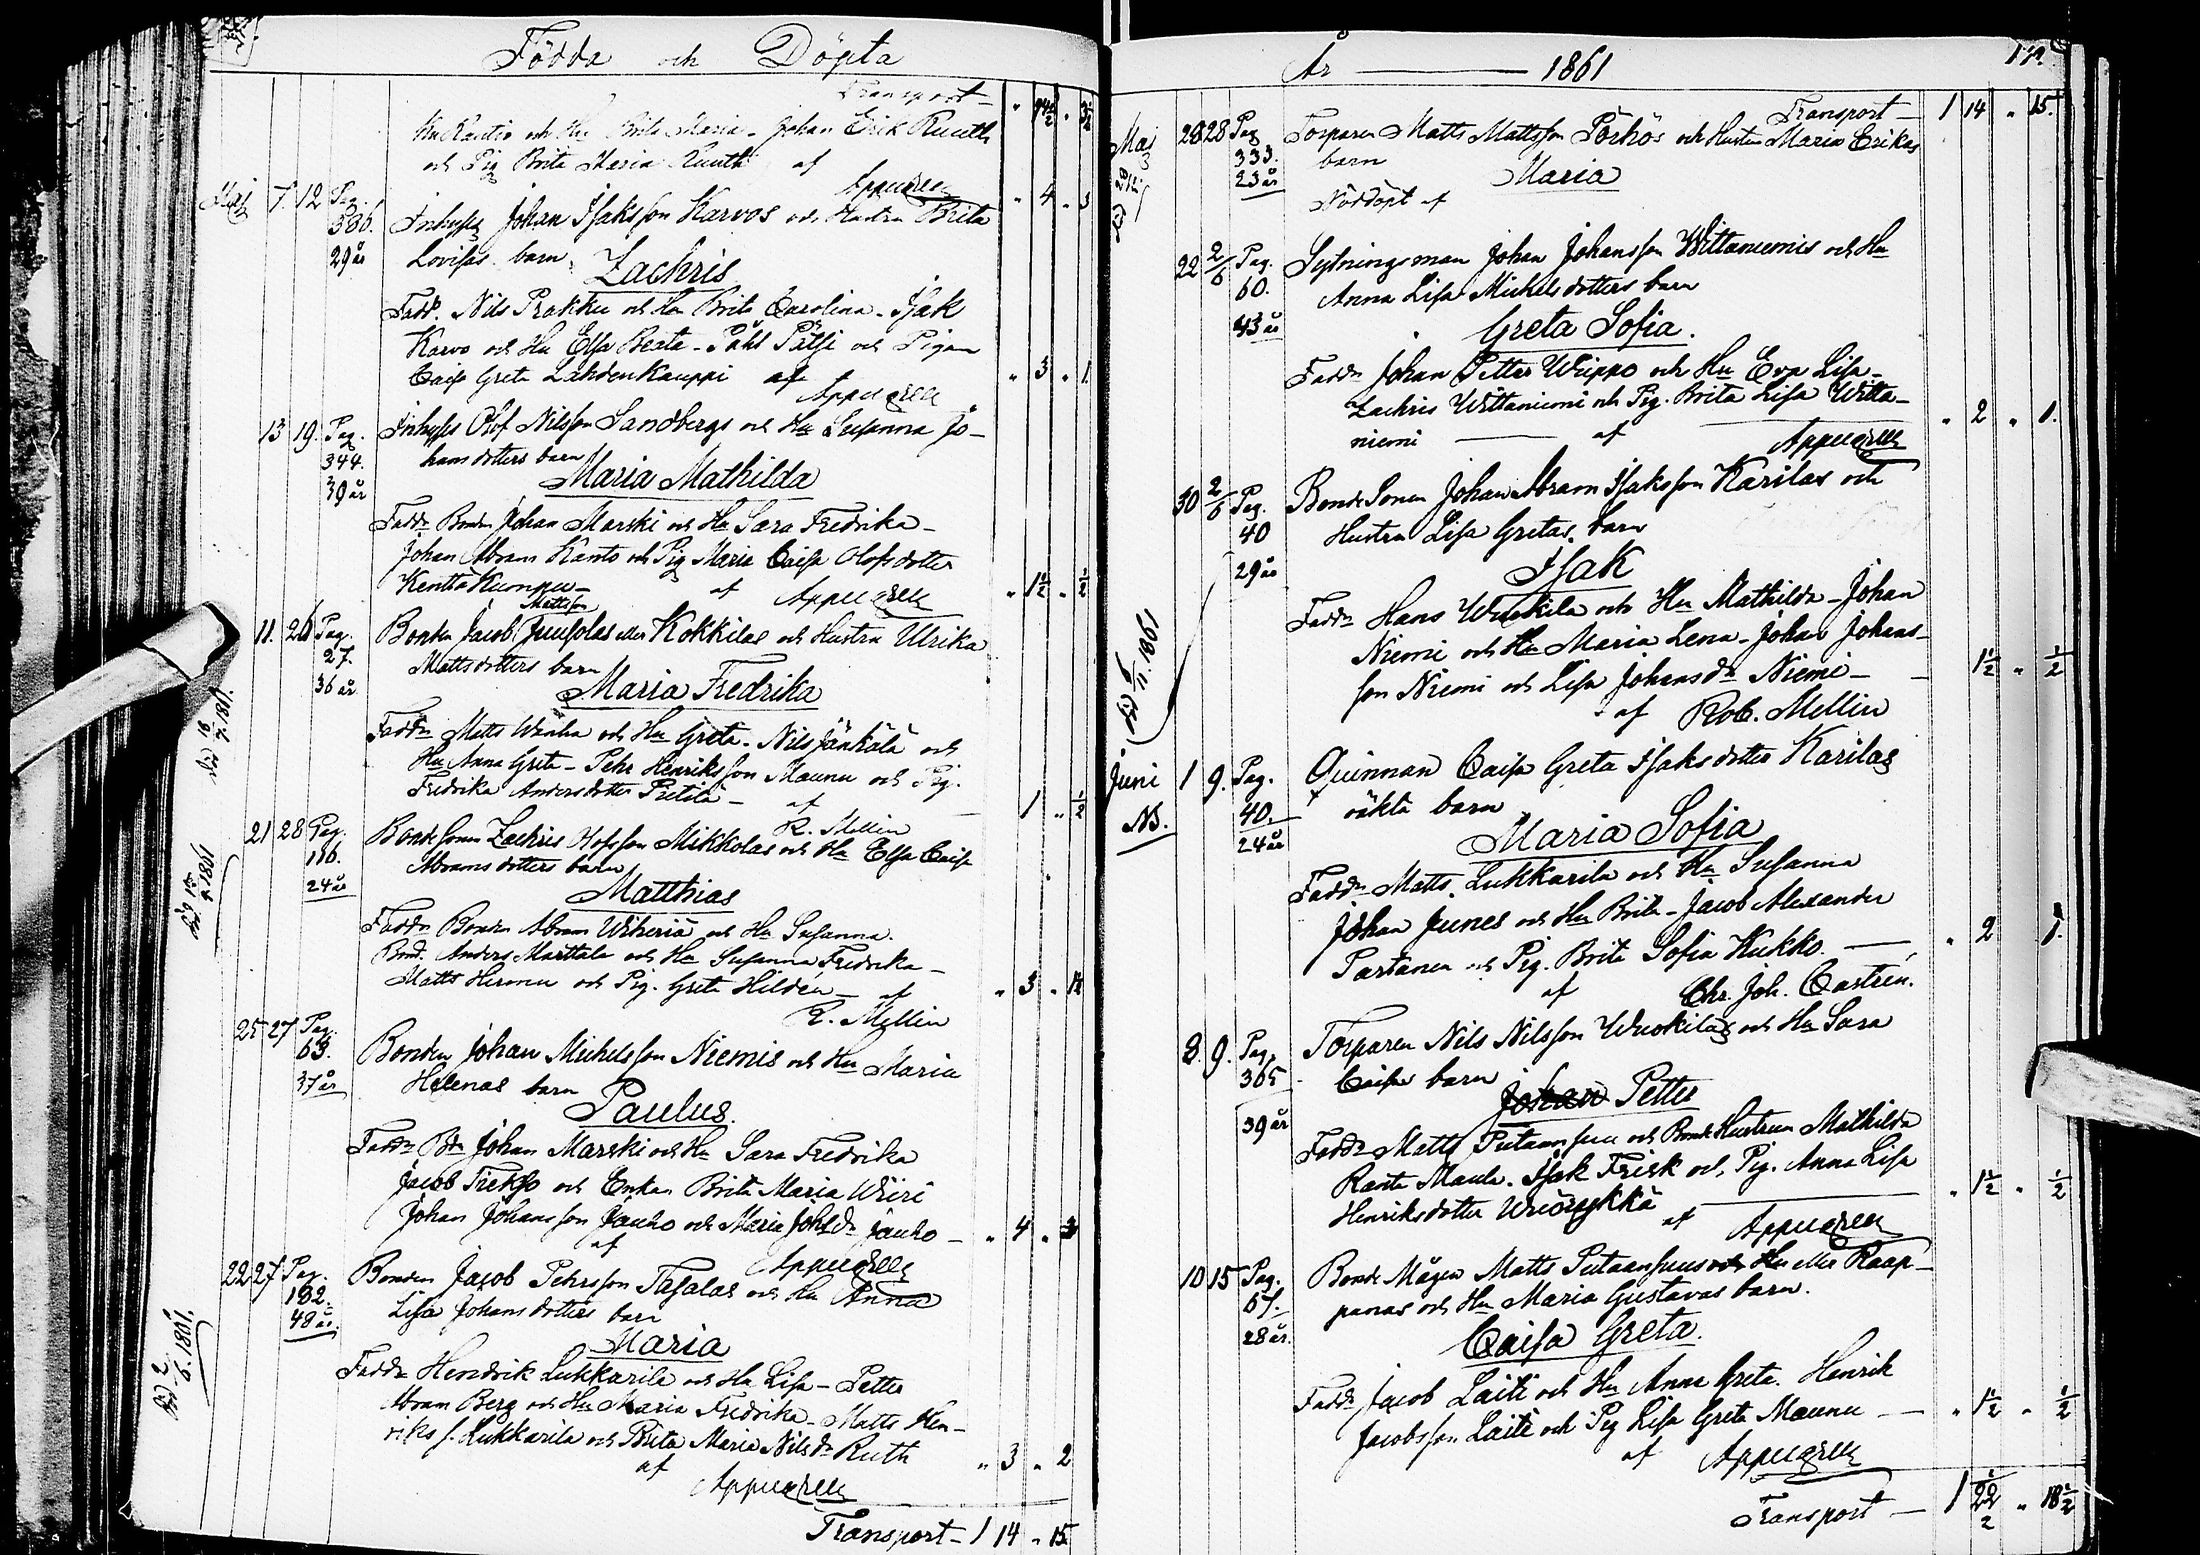 Födda och Döpta
Transport
Rantio och Hu Brita Maria - Johan Erik Ruuth
och Pig Brita Maria Ruuth af
Appelgren " 4 . 3
Maj 7. 12 Pag. 386. 29 år
Inhyses Johan Isaksson Karvos och Hustru Brita
Lovisas barn
Zachris
Fadd. Nils Prakku och Hu Brita Carolina - Isak
Karvo och Hu Elsa Beata - Påhl Pätsi och Pigan
Caisa Greta Lahdenkauppi af " 3 " 1
Appelgren
13 19. Pag. 344. 39 år
Inhyses Olof Nilsson Sandbergs och Hu Susanna Jo-
hansdotters barn
Maria Mathilda
Faddr Bonden Johan Marski och Hu Sara Fredrika -
Johan Abram Kanto och Pig Maria Caisa Olofsdotter
Kenttä Kumpu - af Appelgren " 1½ " ½
11. 26 Pag. 27. 36 år
Mattsson
Bonden Jacob Juusolas eller Kokkilas och Hustru Ulrika
Mattsdotters barn
Maria Fredrika
Faddr Matts Wänhä och Hu Greta. Nils Jänkälä och
Hu Anna Greta - Pehr Henriksson Maunu och Pig.
Fredrika Andersdotter Pietilä - af 1 " ½
R. Mellin
21 28 Pag. 116. 24 år
Bondesonen Zachris Olofsson Mikkolas och Hu Elsa Caisa
Abramsdotters barn
Matthias
Faddr Bonden Abram Wiheriä och Hu Susanna.
Bond. Anders Marttala och Hu Susanna Fredrika -
Matts Hirmu och Pig. Greta Hildén - af " 3 " 1½
R. Mellin
25 27 Pag. 63. 37 år
Bonden Johan Michelsson Niemis och Hu Maria
Helenas barn
Paulus.
Faddr Bdn Johan Marski och Hu Sara Fredrika
Jacob Frekso och Enkan Brita Maria Wiiri
Johan Johansson Jauho och Maria Johsdr Jauho - " 4 " 3
af Appelgren
22 27 Pag. 182. 48 år.
Bonden Jacob Pehrsson Tasalas och Hu Anna
Lisa Johansdotters barn
Maria
Faddr Hendrik Lukkarila och Hu Lisa - Petter
Abram Berg och Hu Maria Fredrika - Matts Hen-
riks s. Lukkarila och Brita Maria Nilsdr Ruth " 3 " 2
af Appelgren
Transport - 1 14 " 15
död 16/7. 1861.
död 2/6. 1861.
År 1861
Transport 1 14 " 15.
Maj 28 28 Pag 333. 23 år
Torparen Matts Mattsson Pörhös och Hustru Maria Erikas
barn
Maria
Nöddöpt af
22 2/6 Pag. 60. 43 år
Sytningsman Johan Johansson Wittaniemis och Hu
Anna Lisa Michelsdotters barn
Greta Sofia.
Faddr Johan Petter Wuippo och Hu Eva Lisa -
Zachris Wittaniemi och Pig. Brita Lisa Witta-
niemi af " 2 " 1.
Appelgren
30 2/6 Pag. 40 29 år
BondeSonen Johan Abram Isaksson Karilas och
Hustru Lisa Gretas barn
Isak
Faddr Hans Wuokila och Hu Mathilda - Johan
Niemi och Hu Maria Lena - Johan Johans-
son Niemi och Lisa Johansdr Niemi - 1½ " ½
af Rob. Mellin
1861
Juni 1 9. Pag. 40. 24 år
NB.
Quinnan Caisa Greta Isaksdotter Karilas
oäkta barn
Maria Sofia
Faddr Matts Lukkarila och Hu Susanna
Johan Junes och Hu Brita - Jacob Alexander
Partanen och Pig. Brita Sofia Kukko. " 2 1.
af Chr. Joh. Castrén.
8. 9. Pag. 365 39 år
Torparen Nils Nilsson Wuokilas och Hu Sara
Caisas barn
Johan Petter
Faddr Matts Putaansuu och BondeHustrun Mathilda
Ranta Maula. Isak Frisk och Pig. Anna Lisa
Henriksdotter Wuörykkä " 1½ " ½
af Appelgren
10 15 Pag. 67. 28 år.
Bonde Mågen Matts Putaansuus och Hu eller Raap-
panas och Hu Maria Gustavas barn.
Caisa Greta.
Faddr Jacob Laiti och Hu Anna Greta. Henrik
Jacobsson Laiti och Pig Lisa Greta Maunu " 1½ " ½
af Appelgren
Transport - 1 22½ " 18½